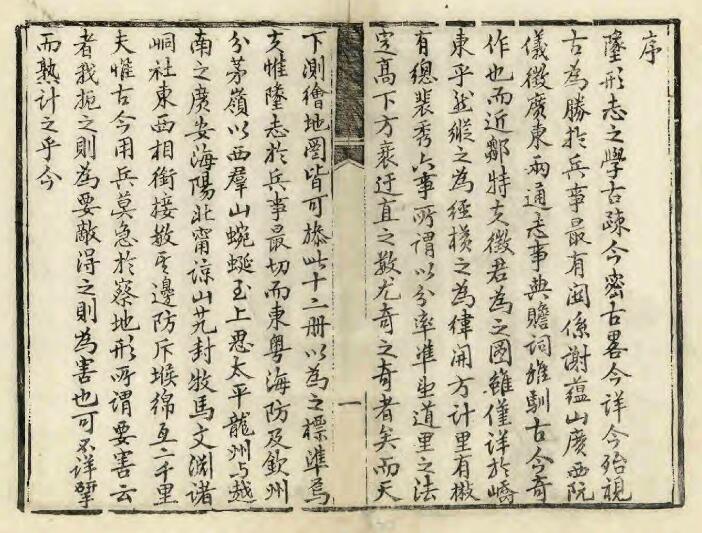 序
墬形志之學古疎今密古畧今詳今殆視
古為勝於兵事最有関係謝蕴山廣西阮
儀徵廣東兩通志事典贍詞雅馴古今奇
作也而近鄒特夫徵君為之圖雖僅詳於嶠
東乎然縱之為經橫之為緯開方計里有
有總裴秀六事所謂以分率準望道里之法
定高下方衺迂直之數尤奇之奇者矣而天
一
下測繪地圖皆可放此十二册以為之標準焉
夫惟墬志於兵事最切而東粤海防及欽州
分茅嶺以西羣山蜿蜒至上思太平龍州与越
南之廣安海陽北甯諒山艽封牧馬文淵諸
峒社東西相銜接敎邊防斥堠綿亙二千里
夫惟古今用兵莫急於察地形所謂要害云
者我扼之則為要敵得之則為害也可不詳擘
而熟計之乎今